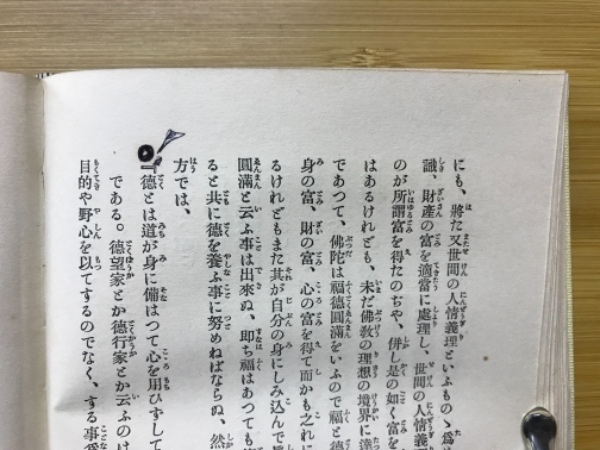 にも、將た又世間の人情義理といふものゝ爲め
識、財產の富を適當に處理し、世間の人情義
のが所謂富を得たのぢや、併し是の如く富を
はあるけれども、未だ佛敎の理想の境界に達
であつて、佛陀は福德圓滿をいふので福と德
身の富、財の富、心の富を得て而かも之れに
るけれどもまた其が自分の身にしみ込んで
圓滿と云ふ事は出來ぬ、卽ち福はあつても
ると共に德を養ふ事に努めねばならぬ、然
方では、
『德とは道が身に備はつて心を用ひずして
である。德望家とか德行家とか云ふのは
目的や野心を以てするのでなく、する事